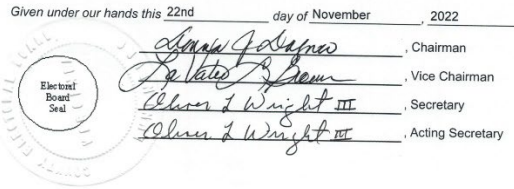 Given under our hands this 22nd day of November, 2022
Donna J , Chairman
, Vice Chairman
Oliver L Wright III , Secretary
Oliver L Wright III , Acting Secretary
Electoral
Board
Seal